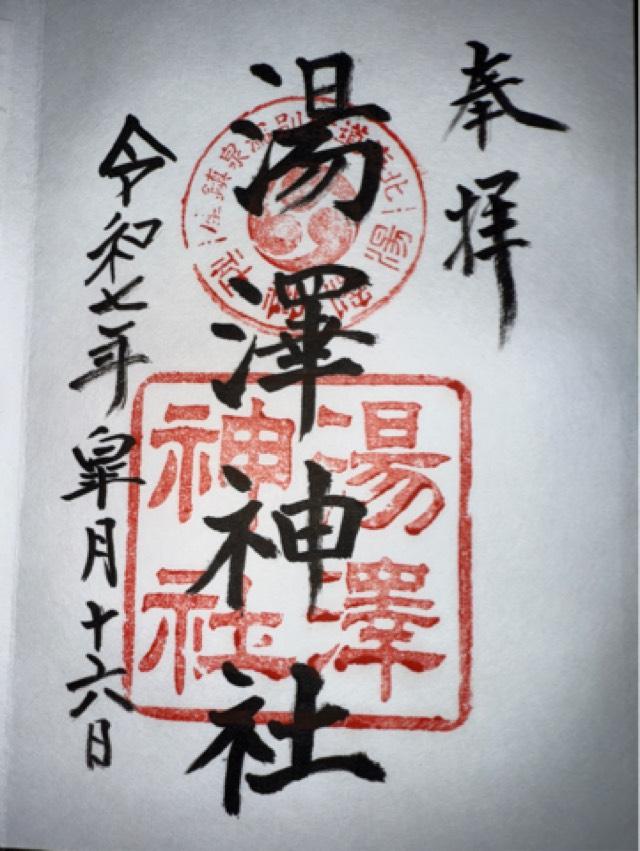 奉拝
湯澤神社
令和七年皐月十六日
湯澤
神社